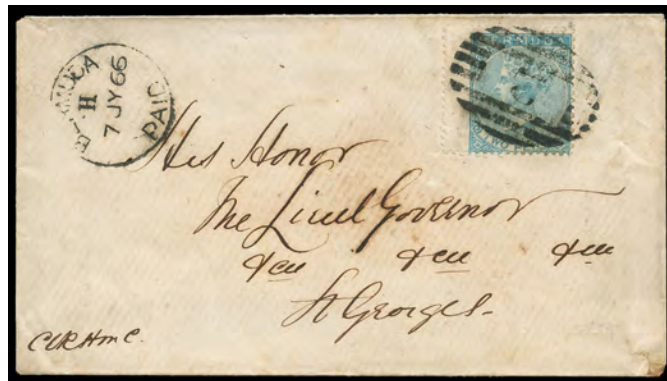 BERMUDA
H
7 JY 66
PAID
BERMUDA
TWO
His Honor
The Lieut Governor
&cc &cc &cc
St Georges.